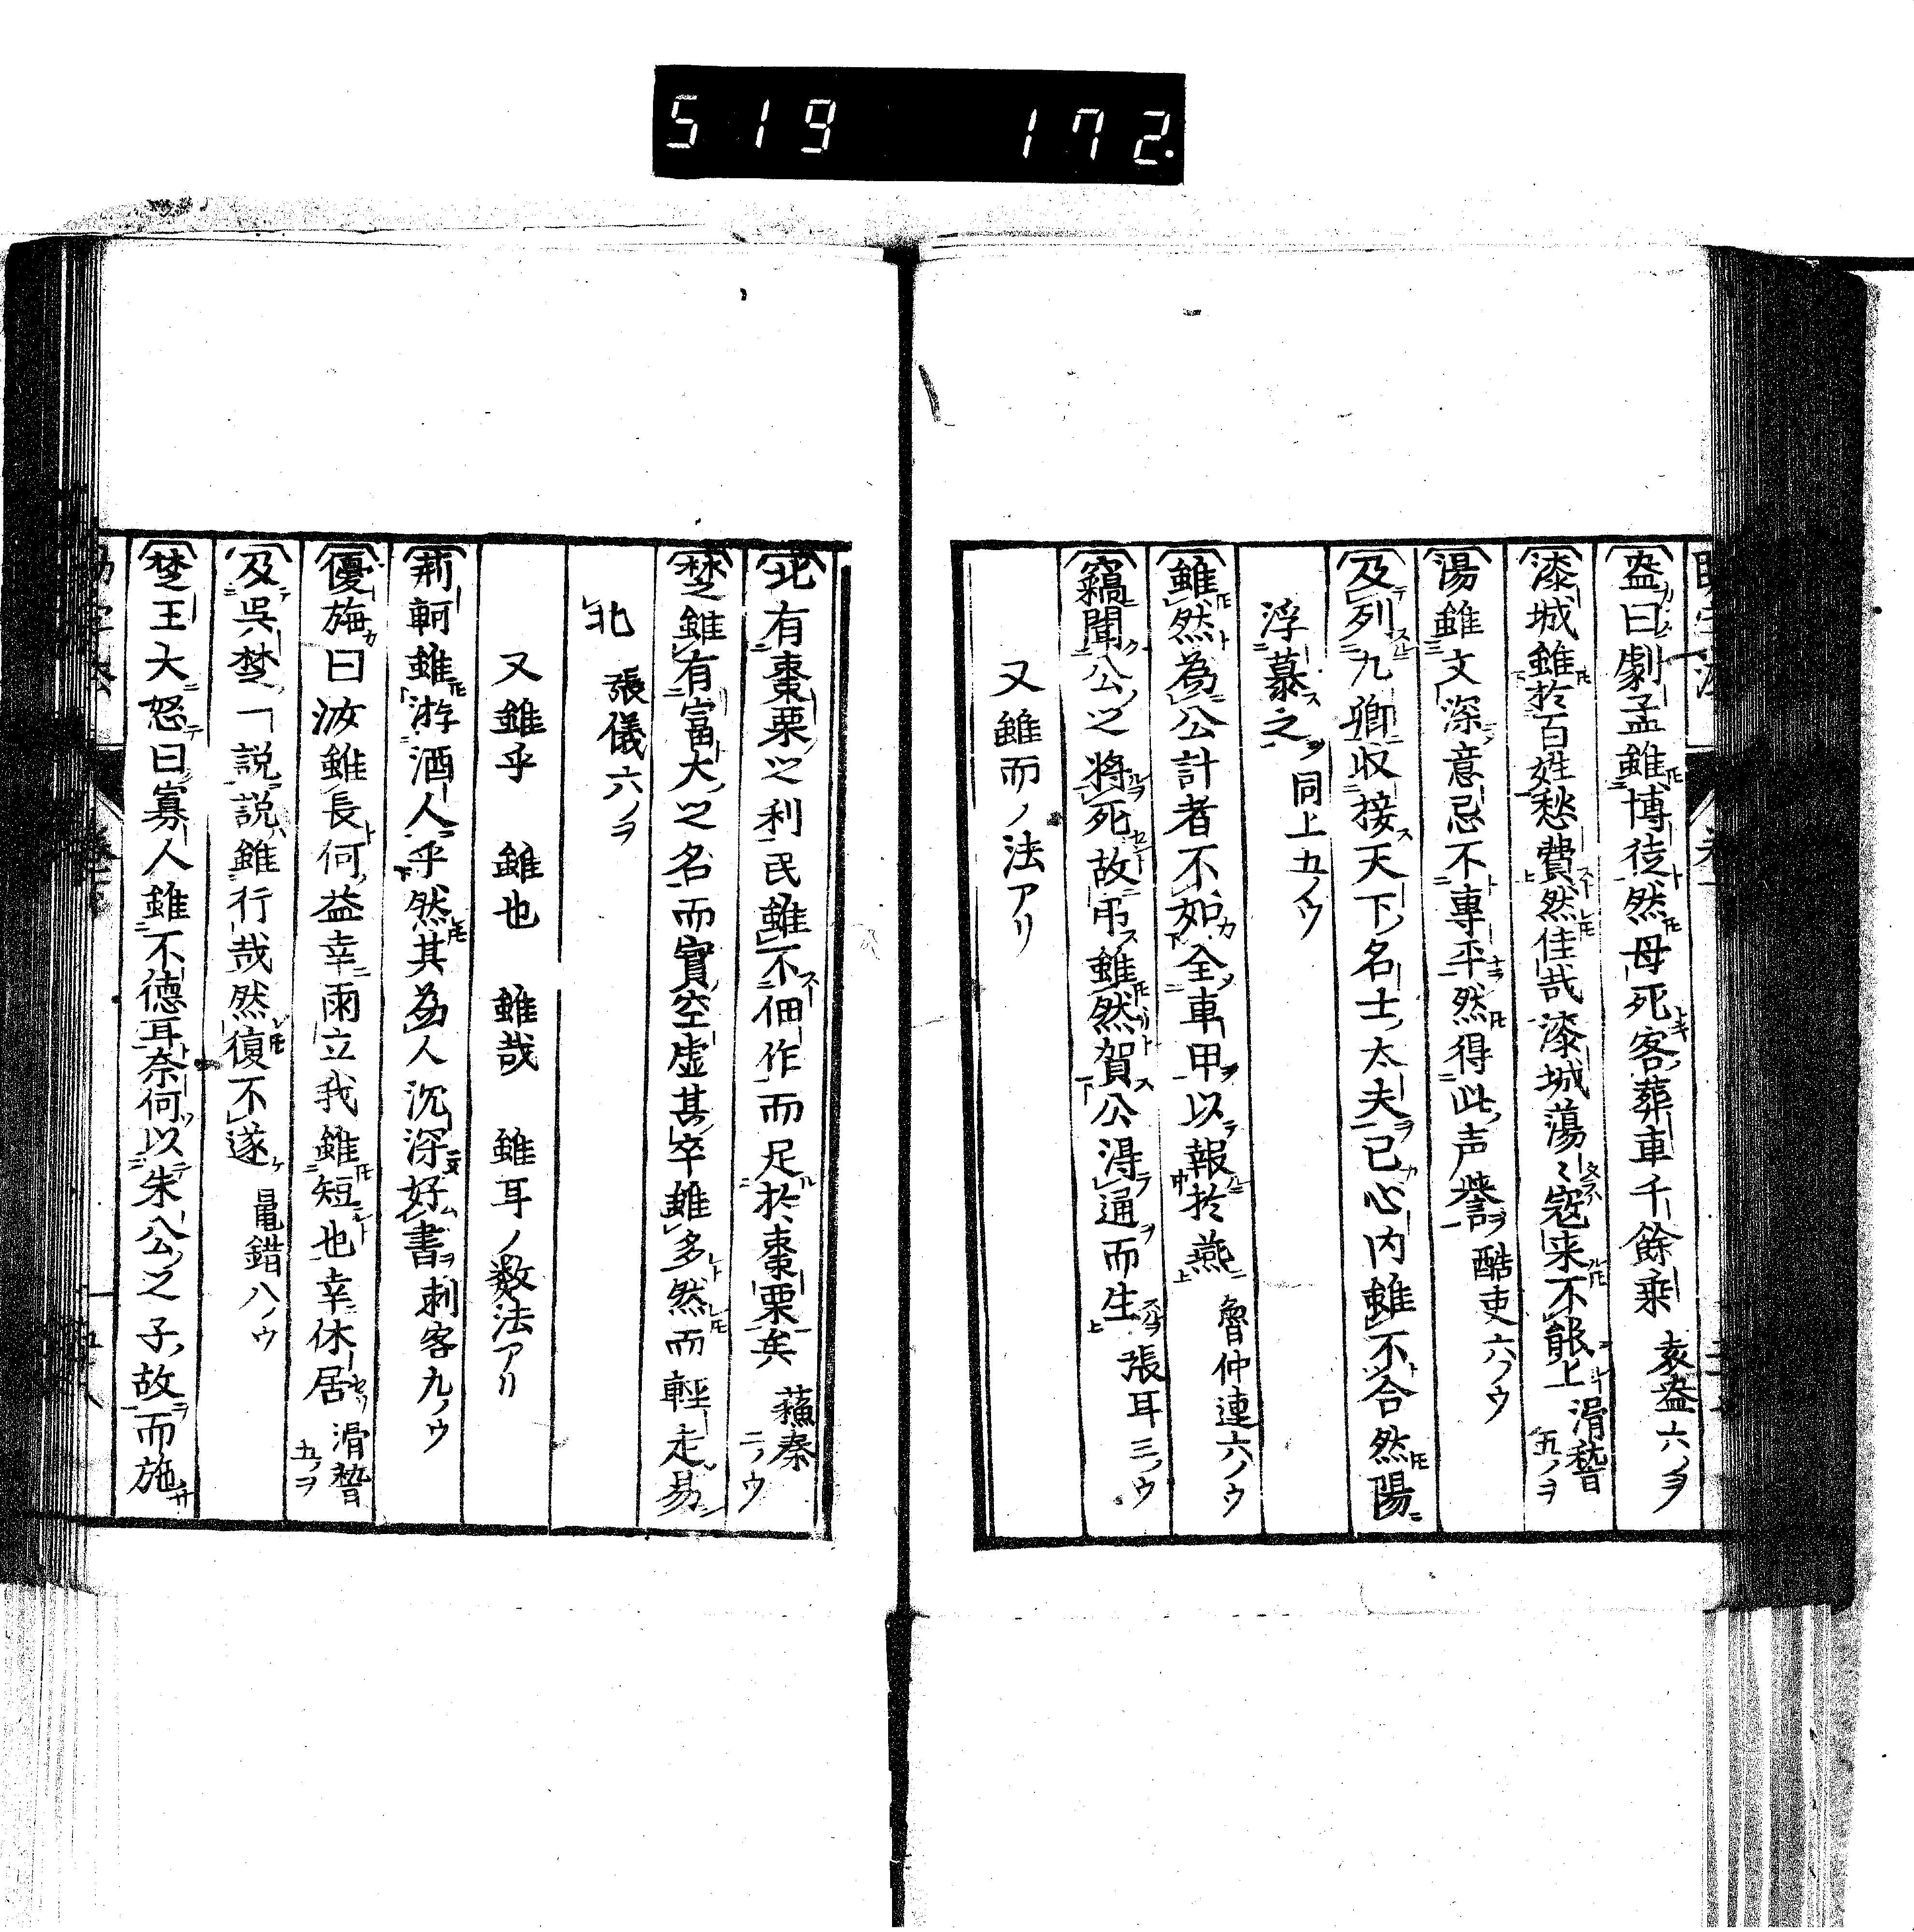 519 172.
盎曰劇孟雖博徒然母死客葬車千餘乗 袁盎六ノヲ
漆城雖於百姓愁費然佳哉漆城蕩〻寇来不能上 滑稽五ノヲ
湯雖文深意忌不專平然得此声譽 酷吏六ノウ
及列九卿収接天下名士太夫已心内雖不合然陽
浮慕之 同上五ノウ
雖然為公計者不如全車甲以報於燕 魯仲連六ノウ
竊聞公之将死故弔雖然賀公得通而生 張耳三ノウ
又雖而ノ法アリ
北有棗栗之利民雖不佃作而足於棗栗矣 蘇秦二ノウ
楚雖有富大之名而實空虚其卒雖多然而輕走易
北 張儀六ノヲ
又雖乎 雖也 雖哉 雖耳ノ数法アリ
荊軻雖游酒人乎然其為人沉深好書 刺客九ノウ
優旃曰汝雖長何益幸雨立我雖短也幸休居 滑稽五ノヲ
及呉楚一説説雖行哉然復不遂 鼂錯八ノウ
楚王大怒曰寡人雖不德耳奈何以朱公之子故而施